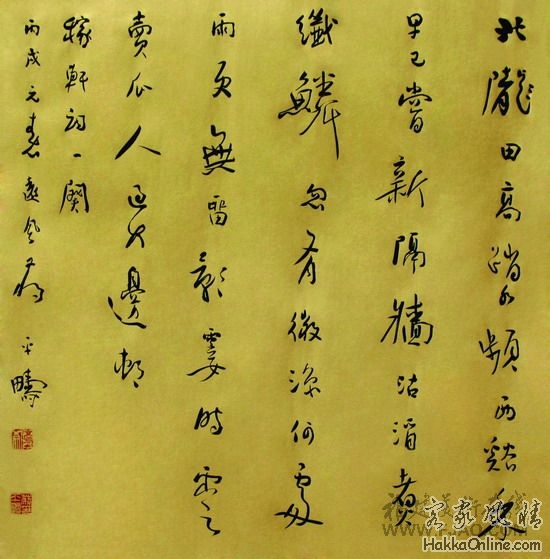 北隴田高踏水頻西谿禾
早已嘗新隔牆沽酒煮
纖鱗忽有微涼何處
雨更無留影霎時雲
賣瓜人過竹邊邨
稼軒詞一闋
丙戌元春遠風 平疇
客家風情
HakkaOnline.com